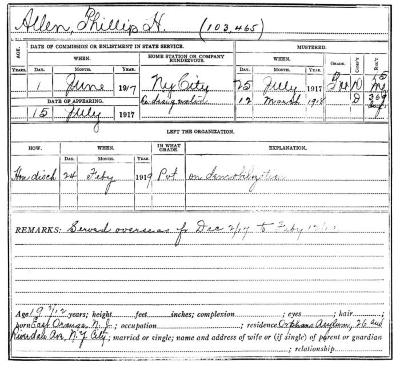 Allen, Phillip H. (103,465)
AGE. DATE OF COMMISSION OR ENLISTMENT IN STATE SERVICE. MUSTERED.
WHEN. HOME STATION OR COMPANY RENDEZVOUS. WHEN. GRADE. COMP'Y REG'T
YEARS. DAY. MONTH. YEAR. DAY. MONTH. YEAR.
1 June 1917 N Y City 25 July 1917 D
DATE OF APPEARING. Redesignated 12 March 1918 D
DAY. MONTH. YEAR.
15 July 1917
LEFT THE ORGANIZATION.
HOW. WHEN. IN WHAT GRADE EXPLANATION.
DAY. MONTH. YEAR.
Hon disch 24 Feby 1919 Pvt on demobilization
REMARKS: Served overseas fr Dec 2/17 to Feby
Age 19 2/12 years; height feet inches; complexion ; eyes ; hair ;
born East Orange N. J.; occupation ; residence Orphans Asylum, 26 and
Riverdale Ave, N Y City; married or single; name and address of wife or (if single) of parent or guardian
; relationship